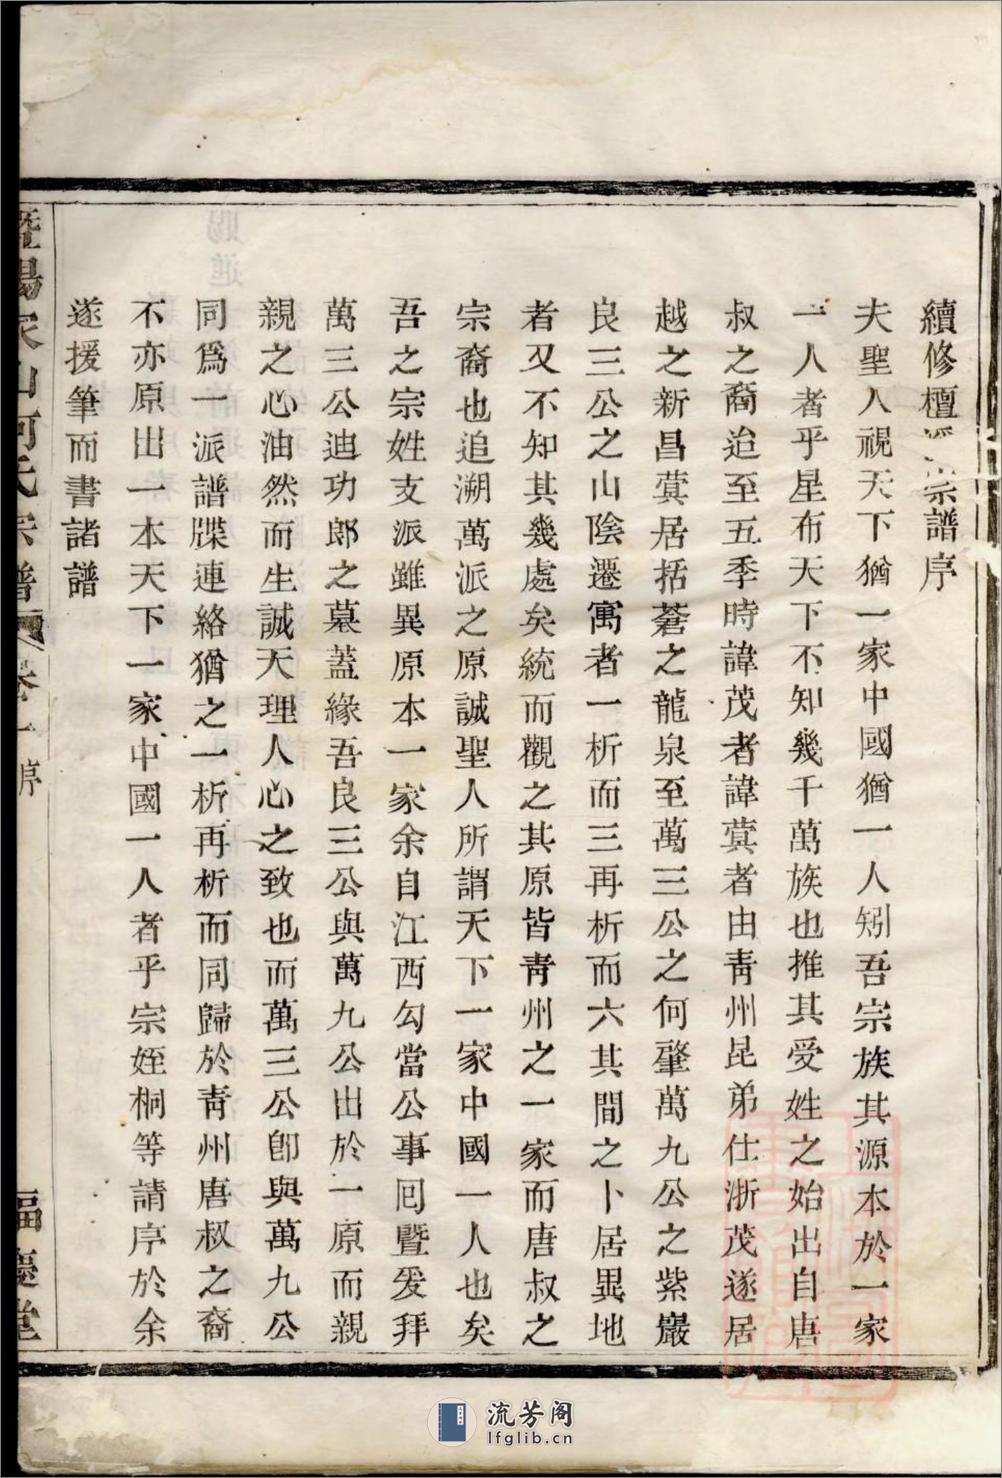 續修檀溪宗譜序
夫聖人視天下猶一家中國猶一人矧吾宗族其源本於一家
一人者乎星布天下不知幾千萬族也推其受姓之始出自唐
叔之裔迨至五季時諱茂者諱蓂者由青州昆弟仕浙茂遂居
越之新昌蓂居括蒼之龍泉至萬三公之何肇萬九公之紫巖
良三公之山陰遷寓者一析而三再析而六其間之卜居異地
者又不知其幾處矣統而觀之其原皆青州之一家而唐叔之
宗裔也追溯萬派之原誠聖人所謂天下一家中國一人也矣
吾之宗姓支派雖異原本一家余自江西勾當公事囘暨爰拜
萬三公迪功郎之墓蓋緣吾良三公與萬九公出於一原而親
親之心油然而生誠天理人心之致也而萬三公卽與萬九公
同爲一派譜牒連絡猶之一析再析而同歸於青州唐叔之裔
不亦原出一本天下一家中國一人者乎宗姪桐等請序於余
遂援筆而書諸譜
暨陽 山何氏宗譜 卷一 序 福慶堂
流芳阁
lfglib.cn